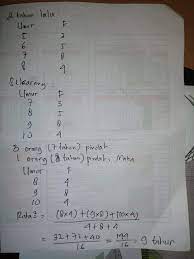 2 tahun lalu
Umur F
5 3
6 5
7 8
8 4
Sekarang :
Umur F
7 3
8 5
9 8
10 4
3 orang (7 tahun) pindah
1 orang (8 tahun) pindah, maka
Umur F
8 4
9 8
10 4
Rata2 = (8x4) + (9x8) + (10x4)
4+8+4
= 32+72+40 = 144 = 9 tahun
16 16